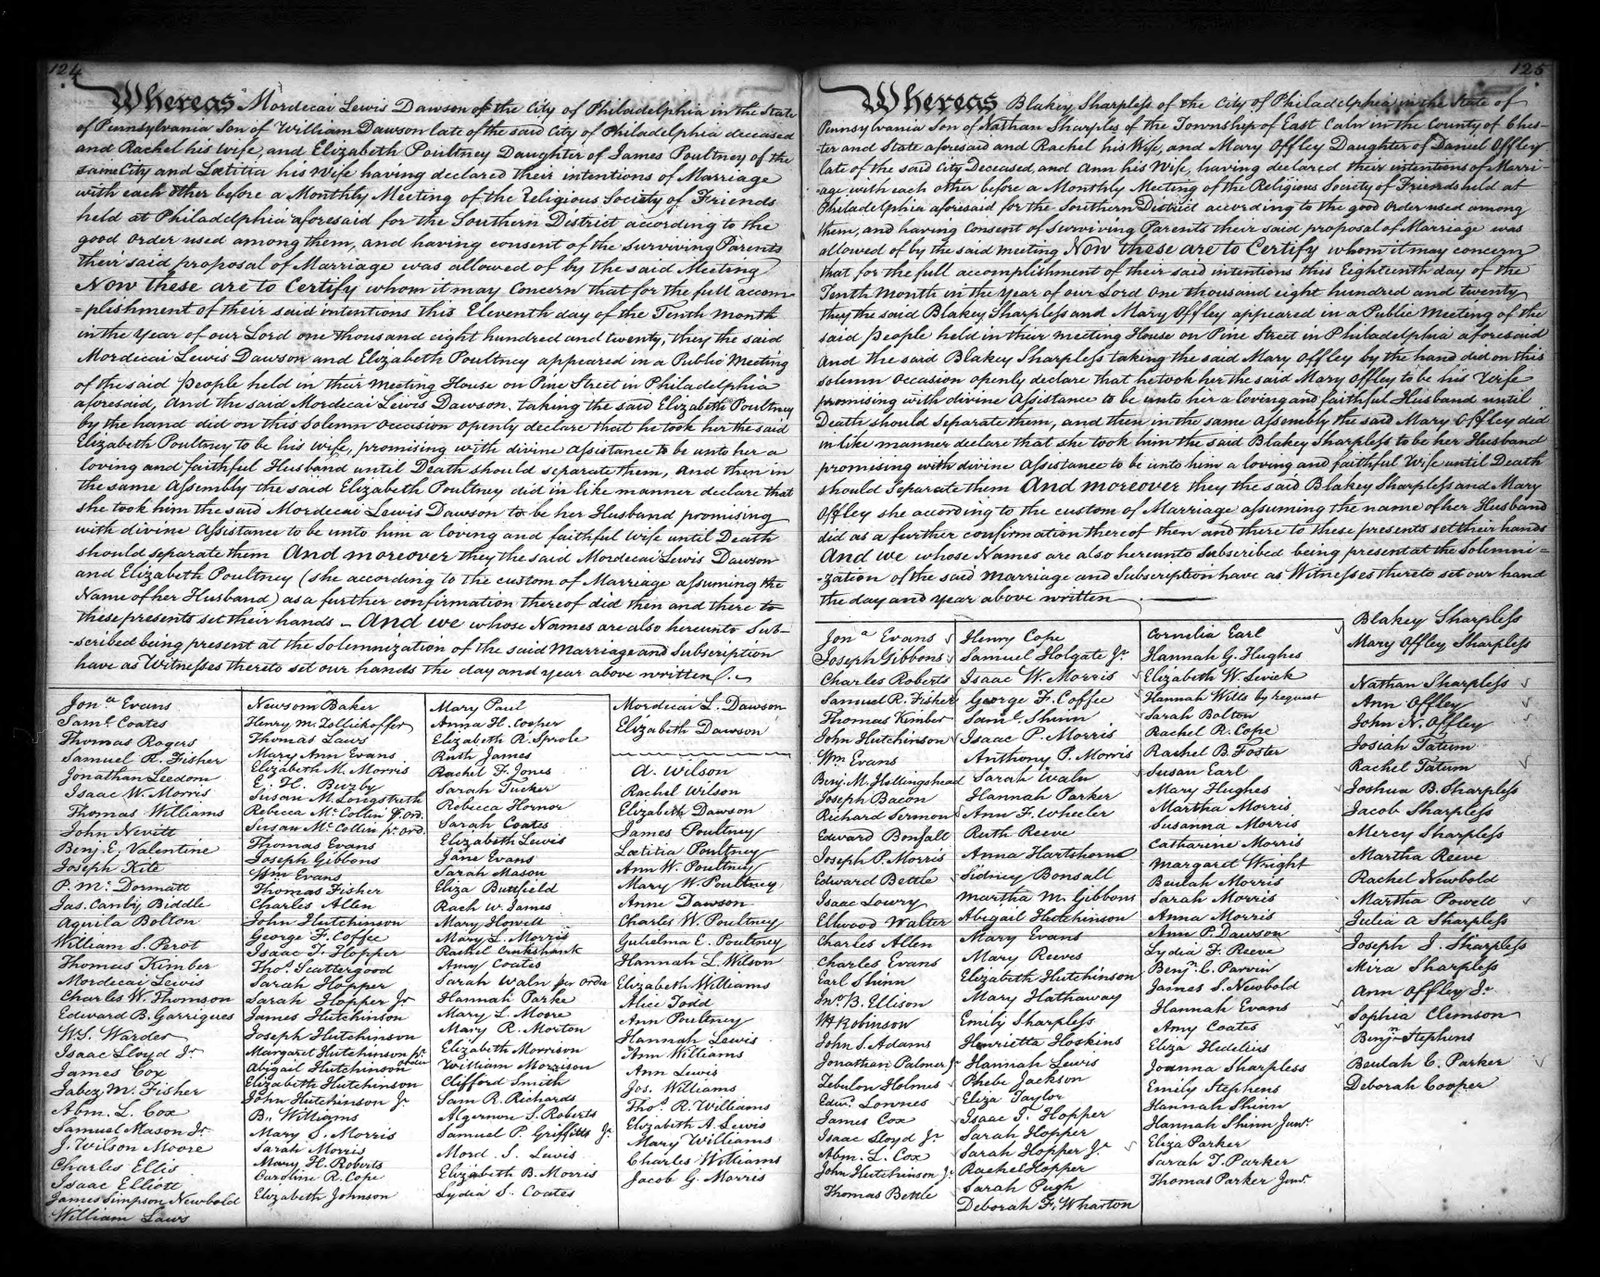 124
Whereas Mordecai Lewis Dawson of the City of Philadelphia in the State
of Pennsylvania Son of William Dawson late of the said City of Philadelphia deceased
and Rachel his Wife, and Elizabeth Poultney Daughter of James Poultney of the
same City and Lætitia his Wife having declared their intentions of Marriage
with each other before a Monthly Meeting of the Religious Society of Friends
held at Philadelphia aforesaid for the Southern District according to the
good order used among them, and having consent of the surviving Parents
their said proposal of Marriage was allowed of by the said Meeting
Now these are to Certify whom it may Concern that for the full accom-
=plishment of their said intentions this Eleventh day of the Tenth Month
in the Year of our Lord one thousand eight hundred and twenty, they the said
Mordecai Lewis Dawson and Elizabeth Poultney appeared in a Public Meeting
of the said People held in their Meeting House on Pine Street in Philadelphia
aforesaid, And the said Mordecai Lewis Dawson, taking the said Elizabeth Poultney
by the hand did on this Solemn Occasion openly declare that he took her the said
Elizabeth Poultney to be his Wife, promising with divine assistance to be unto her a
loving and faithful Husband until Death should separate them, And then in
the same Assembly the said Elizabeth Poultney did in like manner declare that
she took him the said Mordecai Lewis Dawson to be her Husband promising
with divine Assistance to be unto him a loving and faithful Wife until Death
should separate them And moreover they the said Mordecai Lewis Dawson
and Elizabeth Poultney (she according to the custom of Marriage assuming the
Name of her Husband) as a further confirmation thereof did then and there to
these presents set their hands - And we whose Names are also hereunto Sub-
-scribed being present at the Solemnization of the said Marriage and Subscription
have as Witnesses thereto set our hands the day and year above written.
Jonᵃ Evans
Samˡ Coates
Thomas Rogers
Samuel R. Fisher
Jonathan Leedom
Isaac W. Morris
Thomas Williams
John Nevitt
Benj. E. Valentine
Joseph Kite
P. Mᶜ Dormatt
Jas. Canby Biddle
Aquila Bolton
William S. Perot
Thomas Kimber
Mordecai Lewis
Charles W. Thomson
Edward B. Garrigues
W.S. Warder
Isaac Lloyd Jr
James Cox
Jabez M. Fisher
Abm. L. Cox
Samuel Mason Jr
J. Wilson Moore
Charles Ellis
Isaac Elliott
James Simpson Newbold
William Laws
Newsom Baker
Henry M. Zollickoffer
Thomas Laws
Mary Ann Evans
Elizabeth M. Morris
E. H. Buzby
Susan M. Longstreth
Rebecca Mᶜ Collin pr Ord.
Susan Mᶜ Collin pr Ord.
Thomas Evans
Joseph Gibbons
Wm Evans
Thomas Fisher
Charles Allen
John Hutchinson
George F. Coffee
Isaac T. Hopper
Thoˢ Scattergood
Sarah Hopper
Sarah Hopper Jr
James Hutchinson
Joseph Hutchinson
Margaret Hutchinson pr order
Abigail Hutchinson
Elizabeth Hutchinson
John Hutchinson Jr
B. Williams
Mary S. Morris
Sarah Morris
Mary H. Roberts
Caroline R. Cope
Elizabeth Johnson
Mary Paul
Anna H. Cooper
Elizabeth R. Sprole
Ruth James
Rachel F. Jones
Sarah Tucker
Rebecca Hornor
Sarah Coates
Elizabeth Lewis
Jane Evans
Sarah Mason
Eliza Buttfield
Rach W. James
Mary Howell
Mary L. Morris
Rachel Crukshank
Amy Coates
Sarah Waln per order
Hannah Parke
Mary L. Moore
Mary R. Morton
Elizabeth Morrison
William Morrison
Clifford Smith
Sam R. Richards
Algernon S. Roberts
Samuel P. Griffitts Jr
Mord S. Lewis
Elizabeth B. Morris
Lydia S. Coates
Mordecai L. Dawson
Elizabeth Dawson
A. Wilson
Rachel Wilson
Elizabeth Dawson
James Poultney
Lætitia Poultney
Ann W. Poultney
Mary W. Poultney
Anne Dawson
Charles W. Poultney
Gulielma E. Poultney
Hannah L. Wilson
Elizabeth Williams
Alice Todd
Ann Poultney
Hannah Lewis
Ann Williams
Ann Lewis
Jos. Williams
Thoˢ R. Williams
Elizabeth A. Lewis
Mary Williams
Charles Williams
Jacob G. Morris
125
Whereas Blakey Sharpless of the City of Philadelphia in the State of
Pennsylvania Son of Nathan Sharples of the Township of East Caln in the County of Ches-
ter and State aforesaid and Rachel his Wife, and Mary Offley Daughter of Daniel Offley
late of the said City Deceased, and Ann his Wife, having declared their intentions of Marri-
-age with each other before a Monthly Meeting of the Religious Society of Friends held at
Philadelphia aforesaid for the Southern District according to the good Order used among
them, and having Consent of Surviving Parents their said proposal of Marriage was
allowed of by the said meeting Now these are to Certify whom it may concern
that for the full accomplishment of their said intentions this Eighteenth day of the
Tenth Month in the Year of our Lord One thousand eight hundred and twenty
they the said Blakey Sharpless and Mary Offley appeared in a Public Meeting of the
said People held in their meeting House on Pine Street in Philadelphia aforesaid
And the said Blakey Sharpless taking the said Mary Offley by the hand did on this
solemn Occasion openly declare that he took her the said Mary Offley to be his Wife
promising with divine Assistance to be unto her a loving and faithful Husband until
Death should separate them, and then in the same Assembly the said Mary Offley did
in like manner declare that she took him the said Blakey Sharpless to be her Husband
promising with divine Assistance to be unto him a loving and faithful Wife until Death
should separate them And moreover they the said Blakey Sharpless and Mary
Offley she according to the custom of Marriage assuming the name of her Husband
did as a further confirmation thereof then and there to these presents set their hands
And we whose Names are also hereunto subscribed being present at the Solemni=
-zation of the said Marriage and Subscription have as Witnesses thereto set our hand
the day and year above written
Jonᵃ Evans
Joseph Gibbons
Charles Roberts
Samuel R. Fisher
Thomas Kimber
John Hutchinson
Wm Evans
Benj. M. Hollingshead
Joseph Bacon
Richard Sermon
Edward Bonsall
Joseph P. Morris
Edward Bettle
Isaac Lowry
Ellwood Walter
Charles Allen
Charles Evans
Earl Shinn
Jnᵒ B. Ellison
Wm Robinson
John S. Adams
Jonathan Palmer Jr
Zebulon Holmes
Edwᵈ Lonnes
James Cox
Isaac Lloyd Jr
Abm. L. Cox
John Hutchinson Jr
Thomas Bettle
Henry Cope
Samuel Holgate Jr
Isaac W. Morris
George F. Coffee
Samˡ Shinn
Isaac P. Morris
Anthony P. Morris
Sarah Waln
Hannah Parker
Ann F. Wheeler
Ruth Reeve
Anna Hartshorne
Sidney Bonsall
Martha M. Gibbons
Abigail Hutchinson
Mary Evans
Mary Reeves
Elizabeth Hutchinson
Mary Hathaway
Emily Sharpless
Henrietta Hoskins
Hannah Lewis
Phebe Jackson
Eliza Taylor
Isaac T. Hopper
Sarah Hopper
Sarah Hopper Jr
Rachel Hopper
Sarah Pugh
Deborah F. Wharton
Cornelia Earl
Hannah G. Hughes
Elizabeth W. Levick
Hannah Wills by request
Sarah Bolton
Rachel R. Cope
Rachel B. Foster
Susan Earl
Mary Hughes
Martha Morris
Susanna Morris
Catharine Morris
Margaret Wright
Beulah Morris
Sarah Morris
Anna Morris
Ann P. Dawson
Lydia F. Reeve
Benjⁿ C. Parvin
James S. Newbold
Hannah Evans
Amy Coates
Eliza Hedelius
Joanna Sharpless
Emily Stephens
Hannah Shinn
Hannah Shinn Junr
Eliza Parker
Sarah T. Parker
Thomas Parker Junr
Blakey Sharpless
Mary Offley Sharpless
Nathan Sharpless
Ann Offley
John N. Offley
Josiah Tatum
Rachel Tatum
Joshua B. Sharpless
Jacob Sharpless
Mercy Sharpless
Martha Reeve
Rachel Newbold
Martha Powell
Julia A Sharpless
Joseph J. Sharpless
Mira Sharpless
Ann Offley Jr
Sophia Clemson
Benjⁿ Stephens
Beulah C. Parker
Deborah Cooper